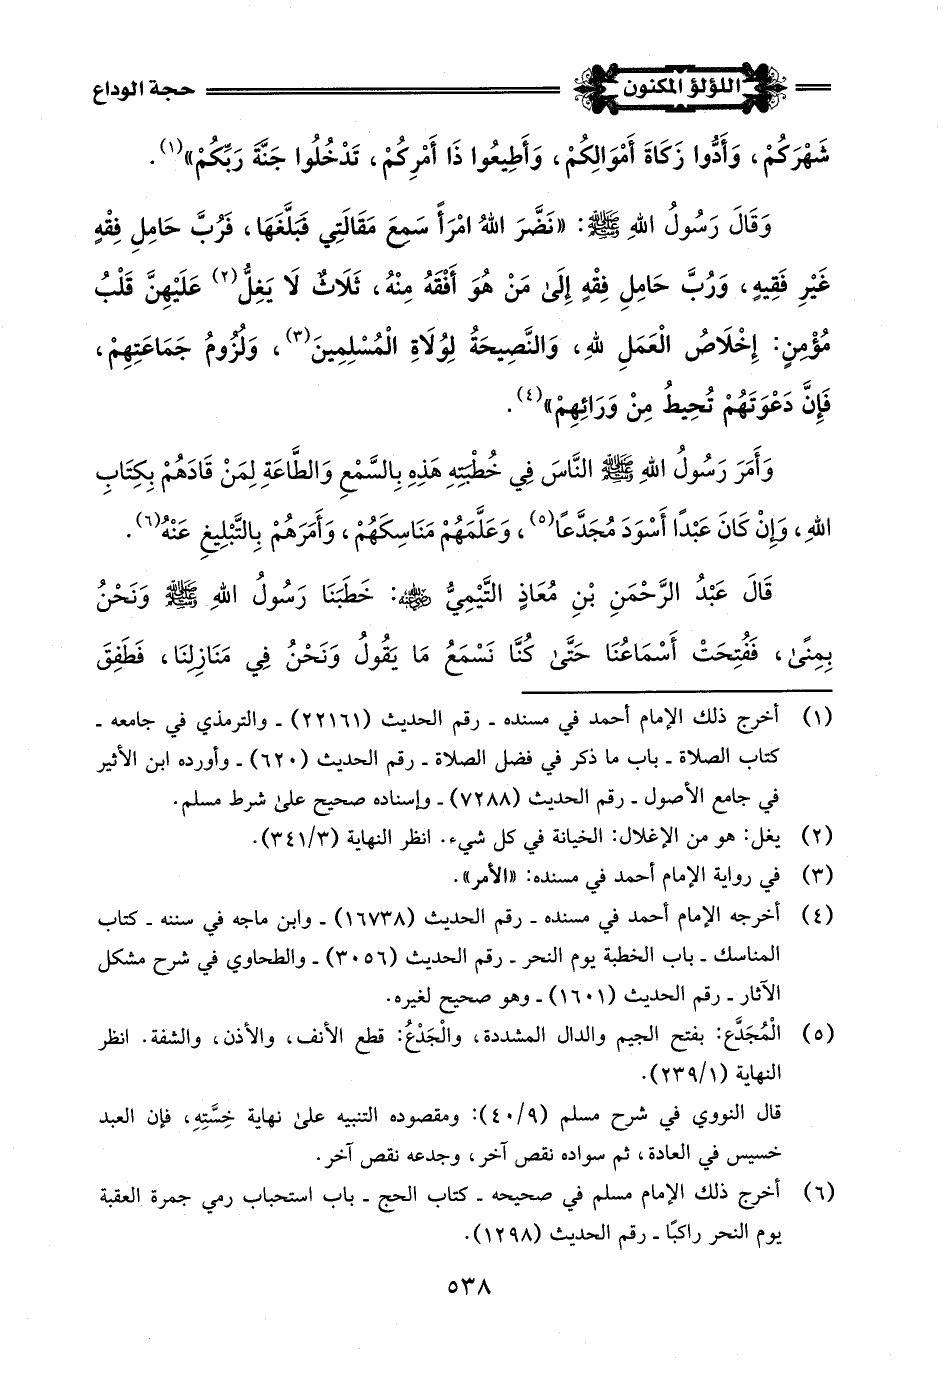 اللؤلؤ المكنون
حجة الوداع
شَهْرَكُمْ، وَأَدُّوا زَكَاةَ أَمْوَالِكُمْ، وَأَطِيعُوا ذَا أَمْرِكُمْ، تَدْخُلُوا جَنَّةَ رَبِّكُمْ»(١).
وَقَالَ رَسُولُ اللهِ ﷺ: «نَضَّرَ اللهُ امْرَأً سَمِعَ مَقَالَتِي فَبَلَّغَهَا، فَرُبَّ حَامِلِ فِقْهٍ
غَيْرِ فَقِيهٍ، وَرُبَّ حَامِلِ فِقْهٍ إِلَىٰ مَنْ هُوَ أَفْقَهُ مِنْهُ، ثَلَاثٌ لَا يَغِلُّ(٢) عَلَيْهِنَّ قَلْبُ
مُؤْمِنٍ: إِخْلَاصُ الْعَمَلِ للهِ، وَالنَّصِيحَةُ لِوُلَاةِ الْمُسْلِمِينَ(٣)، وَلُزُومُ جَمَاعَتِهِمْ،
فَإِنَّ دَعْوَتَهُمْ تُحِيطُ مِنْ وَرَائِهِمْ»(٤).
وَأَمَرَ رَسُولُ اللهِ ﷺ النَّاسَ فِي خُطْبَتِهِ هَذِهِ بِالسَّمْعِ وَالطَّاعَةِ لِمَنْ قَادَهُمْ بِكِتَابِ
اللهِ، وَإِنْ كَانَ عَبْدًا أَسْوَدَ مُجَدَّعًا(٥)، وَعَلَّمَهُمْ مَنَاسِكَهُمْ، وَأَمَرَهُمْ بِالتَّبْلِيغِ عَنْهُ(٦).
قَالَ عَبْدُ الرَّحْمَنِ بْنِ مُعَاذٍ التَّيْمِيُّ رضي الله عنه: خَطَبَنَا رَسُولُ اللهِ ﷺ وَنَحْنُ
بِمِنًىٰ، فَفُتِحَتْ أَسْمَاعُنَا حَتَّىٰ كُنَّا نَسْمَعُ مَا يَقُولُ وَنَحْنُ فِي مَنَازِلِنَا، فَطَفِقَ
(١) أخرج ذلك الإمام أحمد في مسنده ـ رقم الحديث (٢٢١٦١) ـ والترمذي في جامعه ـ
كتاب الصلاة ـ باب ما ذكر في فضل الصلاة ـ رقم الحديث (٦٢٠) ـ وأورده ابن الأثير
في جامع الأصول ـ رقم الحديث (٧٢٨٨) ـ وإسناده صحيح علىٰ شرط مسلم.
(٢) يغل: هو من الإغلال: الخيانة في كل شيء. انظر النهاية (٣٤١/٣).
(٣) في رواية الإمام أحمد في مسنده: «الأمر».
(٤) أخرجه الإمام أحمد في مسنده ـ رقم الحديث (١٦٧٣٨) ـ وابن ماجه في سننه ـ كتاب
المناسك ـ باب الخطبة يوم النحر ـ رقم الحديث (٣٠٥٦) ـ والطحاوي في شرح مشكل
الآثار ـ رقم الحديث (١٦٠١) ـ وهو صحيح لغيره.
(٥) الْمُجَدَّع: بفتح الجيم والدال المشددة، والْجَدْعُ: قطع الأنف، والأذن، والشفة. انظر
النهاية (٢٣٩/١).
قال النووي في شرح مسلم (٤٠/٩): ومقصوده التنبيه علىٰ نهاية خِسَّتِهِ، فإن العبد
خسيس في العادة، ثم سواده نقص آخر، وجدعه نقص آخر.
(٦) أخرج ذلك الإمام مسلم في صحيحه ـ كتاب الحج ـ باب استحباب رمي جمرة العقبة
يوم النحر راكبًا ـ رقم الحديث (١٢٩٨).
٥٣٨